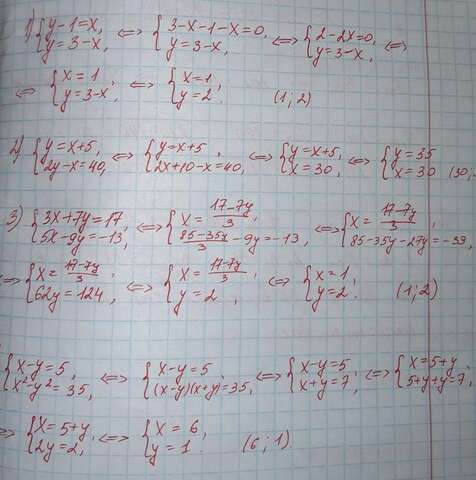 1) {y-1=x, y=3-x, ⇔ {3-x-1-x=0, y=3-x, ⇔ {2-2x=0, y=3-x, ⇔
⇔ {x=1 y=3-x, ⇔ {x=1, y=2. (1;2)
2) {y=x+5, 2y-x=40, ⇔ {y=x+5, 2x+10-x=40, ⇔ {y=x+5, x=30, ⇔ {y=35 x=30 (30;
3) {3x+7y=17, 5x-9y=-13, ⇔ {x=\frac{17-7y}{3}, \frac{85-35y}{3}-9y=-13, ⇔ {x=\frac{17-7y}{3}, 85-35y-27y=-39,
⇔ {x=\frac{17-7y}{3}, 62y=124, ⇔ {x=\frac{17-7y}{3}, y=2, ⇔ {x=1, y=2. (1;2)
{x-y=5, x²-y²=35, ⇔ {x-y=5, (x-y)(x+y)=35, ⇔ {x-y=5 x+y=7, ⇔ {x=5+y, 5+y+y=7,
⇔ {x=5+y, 2y=2, ⇔ {x=6, y=1. (6;1)